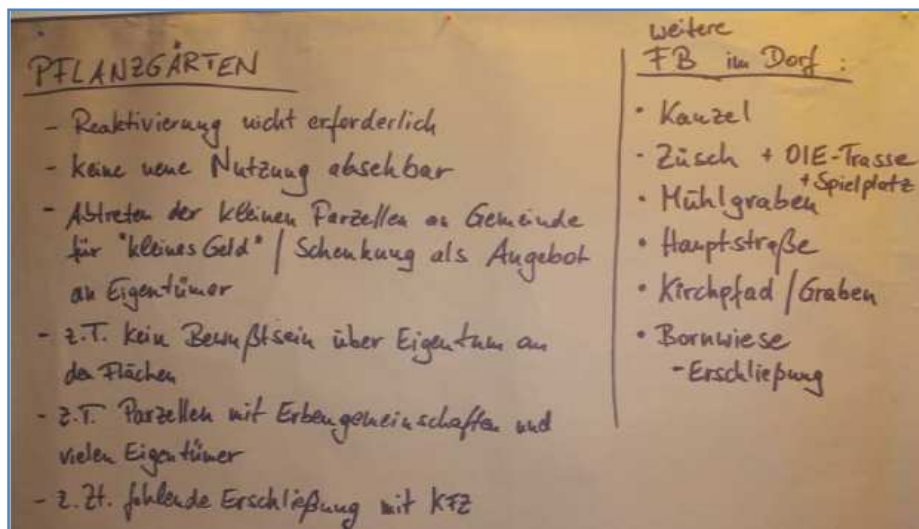 PFLANZGÄRTEN
- Reaktivierung nicht erforderlich
- keine neue Nutzung absehbar
- Abtreten der kleinen Parzellen an Gemeinde
für "kleines Geld" / Schenkung als Angebot
an Eigentümer
- z.T. kein Bewußtsein über Eigentum an
den Flächen
- z.T. Parzellen mit Erbengemeinschaften und
vielen Eigentümer
- z.Zt. fehlende Erschließung mit KFZ
weitere
FB im Dorf :
• Kanzel
• Züsch + OIE-Trasse
+ Spielplatz
• Mühlgraben
• Hauptstraße
• Kirchpfad / Graben
• Bornwiese
- Erschließung